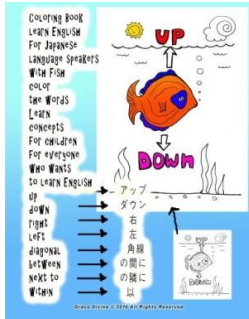 COLORING BOOK
LEARN ENGLISH
For Japanese
Language Speakers
With FISH
COLOR
the Words
Learn
CONCEPTS
For CHILDREN
For EVERYONE
WHO WANTS
to LEARN ENGLISH
UP
DOWN
right
LEFT
diagonal
BETWEEN
NEXT to
WITHIN
UP
DOWN
アップ
ダウン
右
左
角線
の間に
の隣に
以
UP
DOWN
Grace Divine © 2016 All Rights Reserved